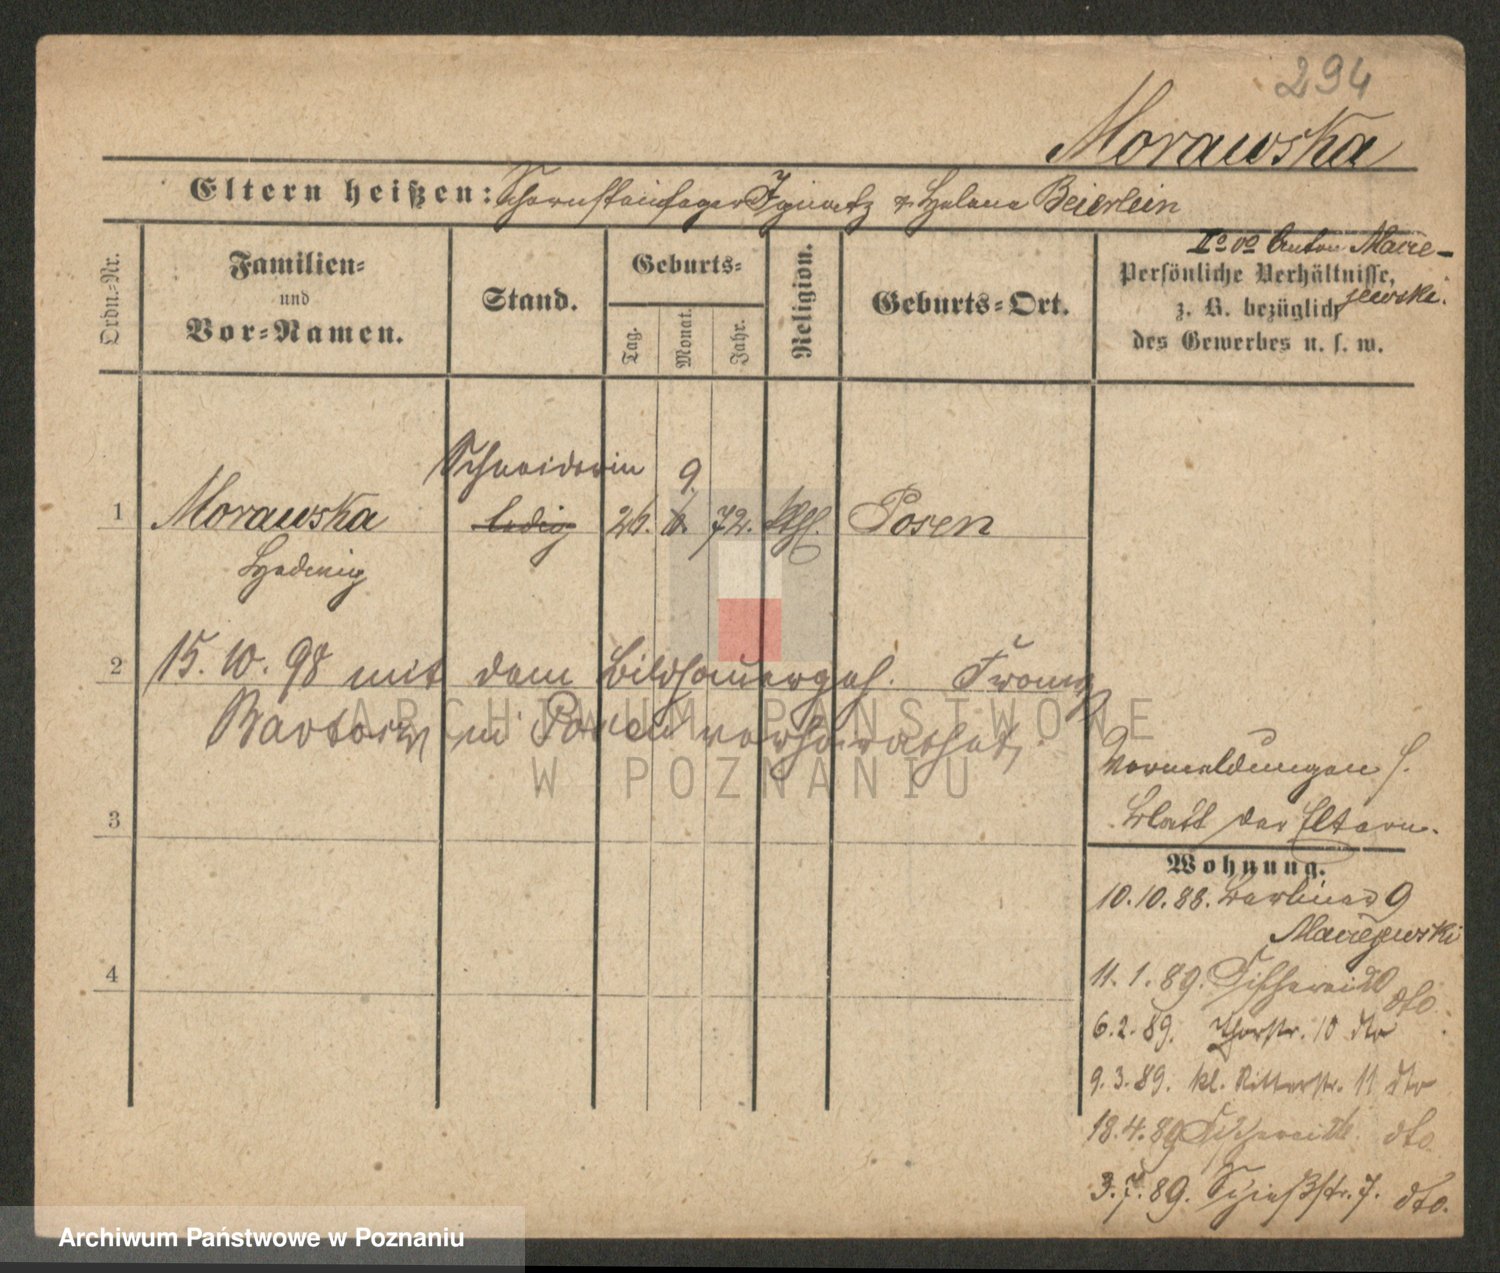 294
Morawska
Eltern heißen: Schornsteinfeger Ignatz & Helena Beierlein
IIo vo Anton Macie-
jewski.
Ordn.-Nr.
Familien-
und
Vor-Namen.
Stand.
Geburts-
Tag.
Monat.
Jahr.
Religion.
Geburts-Ort.
Persönliche Verhältnisse,
z. B. bezüglich
des Gewerbes u. s. w.
Schneiderin 9.
1 Morawska ledig 26. 6. 72. kth. Posen
Hedwig
2 15. 10. 98 mit dem Bildhauergeh. Franz
in Posen verheirathet
3
4
Vormeldungen s.
Blatt der Eltern.
Wohnung.
10.10.88. Berliner 9
Maciejewski
11. 1. 89. Fischerei dto.
6. 2. 89. Thorstr. 10 dto
9. 3. 89. kl. Ritterstr. 11 dto
18. 4. 89 Fischerei dto.
3. 7. 89. Schießstr. 7. dto.
ARCHIWUM PAŃSTWOWE
W POZNANIU
Archiwum Państwowe w Poznaniu